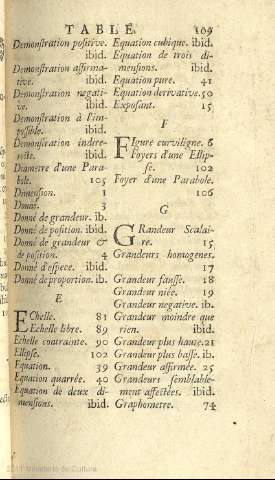 TABLE. 109
Demonstration positive. ibid.
Demonstration affirma-
tive. ibid.
Demonstration negati-
ve. ibid.
Demonstration à l'im-
possible. ibid.
Demonstration indire-
ibid.
Diametre d'une Para-
bole. 105
Dimension. 1
Donné. 3
Donné de grandeur. ib.
Donné de position. ibid.
Donné de grandeur &
de position. 4
Donné d'espece. ibid.
Donné de proportion. ib.
E
EChelle. 81
Echelle libre. 89
Echelle contrainte. 90
Ellipse. 102
Equation. 39
Equation quarrée. 40
Equation de deux di-
mensions. ibid.
Equation cubique. ibid.
Equation de trois di-
mensions. ibid.
Equation pure. 41
Equation derivative. 50
Exposant. 15
F
FIgure curviligne. 6
Foyers d'une Ellip-
se. 102
Foyer d'une Parabole.
106
G
GRandeur Scalai-
re. 15
Grandeurs homogenes.
17
Grandeur fausse. 18
Grandeur niée. 19
Grandeur negative. ib.
Grandeur moindre que
rien. ibid.
Grandeur plus haute. 21
Grandeur plus basse. ib.
Grandeur affirmée. 25
Grandeurs semblable-
ment affectées. ibid.
Graphometre. 74
2011 Ministerio de Cultura